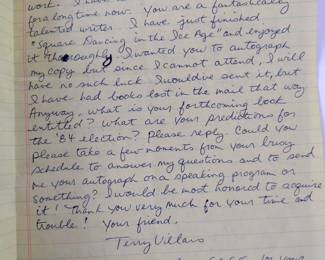 work. I have
for a long time now. You are a fantastically
talented writer. I have just finished
"Square Dancing in the Ice Age" and enjoyed
it thoroughly. I wanted you to autograph
my copy but since I cannot attend, I will
have no such luck. I would've sent it, but
I have had books lost in the mail that way.
Anyway, what is your forthcoming book
entitled? What are your predictions for
the '84 election? Please reply. Could you
please take a few moments from your busy
schedule to answer my questions and to send
me your autograph on a speaking program or
something? I would be most honored to acquire
it! Thank you very much for your time and
trouble! Your friend,
Terry Villars
for your